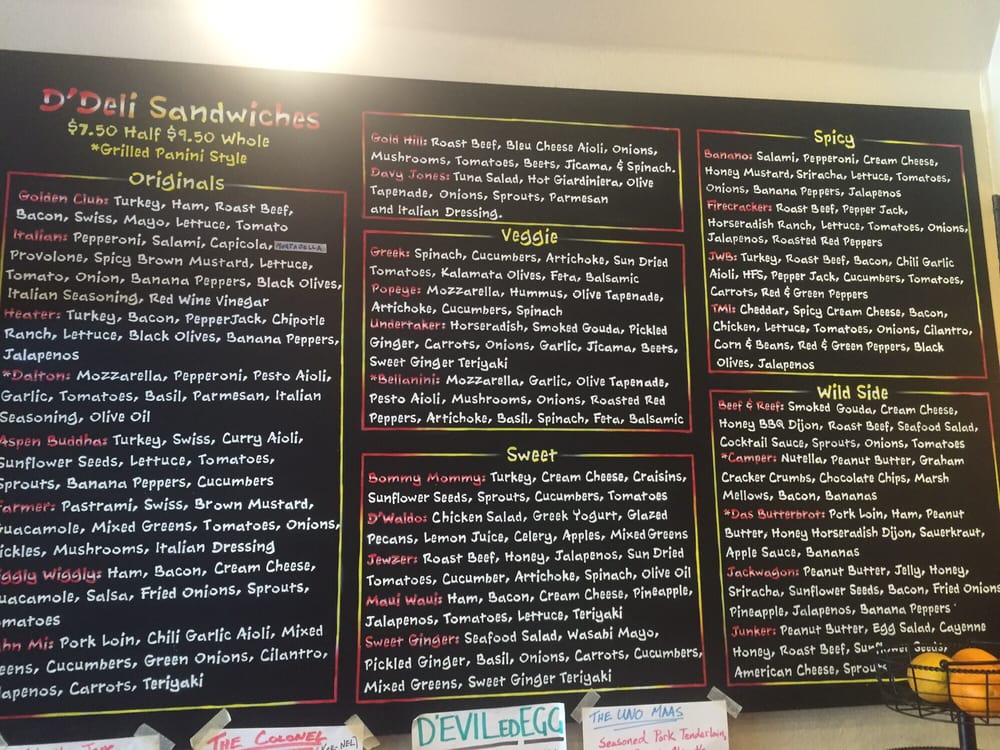 D'Deli Sandwiches
$7.50 Half $9.50 Whole
*Grilled Panini Style
Originals
Golden Club: Turkey, Ham, Roast Beef,
Bacon, Swiss, Mayo, Lettuce, Tomato
Italian: Pepperoni, Salami, Capicola, MORTADELLA
Provolone, Spicy Brown Mustard, Lettuce,
Tomato, Onion, Banana Peppers, Black Olives,
Italian Seasoning, Red Wine Vinegar
Heater: Turkey, Bacon, PepperJack, Chipotle
Ranch, Lettuce, Black Olives, Banana Peppers,
Jalapenos
*Dalton: Mozzarella, Pepperoni, Pesto Aioli,
Garlic, Tomatoes, Basil, Parmesan, Italian
Seasoning, Olive Oil
Aspen Buddha: Turkey, Swiss, Curry Aioli,
Sunflower Seeds, Lettuce, Tomatoes,
Sprouts, Banana Peppers, Cucumbers
armer: Pastrami, Swiss, Brown Mustard,
uacamole, Mixed Greens, Tomatoes, Onions,
ickles, Mushrooms, Italian Dressing
iggly Wiggly: Ham, Bacon, Cream Cheese,
uacamole, Salsa, Fried Onions, Sprouts,
omatoes
ahn Mi: Pork Loin, Chili Garlic Aioli, Mixed
eens, Cucumbers, Green Onions, Cilantro,
lapenos, Carrots, Teriyaki
Gold Hill: Roast Beef, Bleu Cheese Aioli, Onions,
Mushrooms, Tomatoes, Beets, Jicama, & Spinach.
Davy Jones: Tuna Salad, Hot Giardiniera, Olive
Tapenade, Onions, Sprouts, Parmesan
and Italian Dressing.
Veggie
Greek: Spinach, Cucumbers, Artichoke, Sun Dried
Tomatoes, Kalamata Olives, Feta, Balsamic
Popeye: Mozzarella, Hummus, Olive Tapenade,
Artichoke, Cucumbers, Spinach
Undertaker: Horseradish, Smoked Gouda, Pickled
Ginger, Carrots, Onions, Garlic, Jicama, Beets,
Sweet Ginger Teriyaki
*Bellanini: Mozzarella, Garlic, Olive Tapenade,
Pesto Aioli, Mushrooms, Onions, Roasted Red
Peppers, Artichoke, Basil, Spinach, Feta, Balsamic
Sweet
Bommy Mommy: Turkey, Cream Cheese, Craisins,
Sunflower Seeds, Sprouts, Cucumbers, Tomatoes
D'Waldo: Chicken Salad, Greek Yogurt, Glazed
Pecans, Lemon Juice, Celery, Apples, Mixed Greens
Jewzer: Roast Beef, Honey, Jalapenos, Sun Dried
Tomatoes, Cucumber, Artichoke, Spinach, Olive Oil
Maui Waui: Ham, Bacon, Cream Cheese, Pineapple,
Jalapenos, Tomatoes, Lettuce, Teriyaki
Sweet Ginger: Seafood Salad, Wasabi Mayo,
Pickled Ginger, Basil, Onions, Carrots, Cucumbers,
Mixed Greens, Sweet Ginger Teriyaki
Spicy
Banano: Salami, Pepperoni, Cream Cheese,
Honey Mustard, Sriracha, Lettuce, Tomatoes,
Onions, Banana Peppers, Jalapenos
Firecracker: Roast Beef, Pepper Jack,
Horseradish Ranch, Lettuce, Tomatoes, Onions,
Jalapenos, Roasted Red Peppers
JWB: Turkey, Roast Beef, Bacon, Chili Garlic
Aioli, HFS, Pepper Jack, Cucumbers, Tomatoes,
Carrots, Red & Green Peppers
TMI: Cheddar, Spicy Cream Cheese, Bacon,
Chicken, Lettuce, Tomatoes, Onions, Cilantro,
Corn & Beans, Red & Green Peppers, Black
Olives, Jalapenos
Wild Side
Beef & Reef: Smoked Gouda, Cream Cheese,
Honey BBQ Dijon, Roast Beef, Seafood Salad,
Cocktail Sauce, Sprouts, Onions, Tomatoes
*Camper: Nutella, Peanut Butter, Graham
Cracker Crumbs, Chocolate Chips, Marsh
Mellows, Bacon, Bananas
*Das Butterbrot: Pork Loin, Ham, Peanut
Butter, Honey Horseradish Dijon, Sauerkraut,
Apple Sauce, Bananas
Jackwagon: Peanut Butter, Jelly, Honey,
Sriracha, Sunflower Seeds, Bacon, Fried Onions
Pineapple, Jalapenos, Banana Peppers
Junker: Peanut Butter, Egg Salad, Cayenne
Honey, Roast Beef, Sunflower Seeds,
American Cheese, Sprou
THE COLONEL
D'EVILEDEGG
THE UNO MAAS
Seasoned Pork Tenderloin,